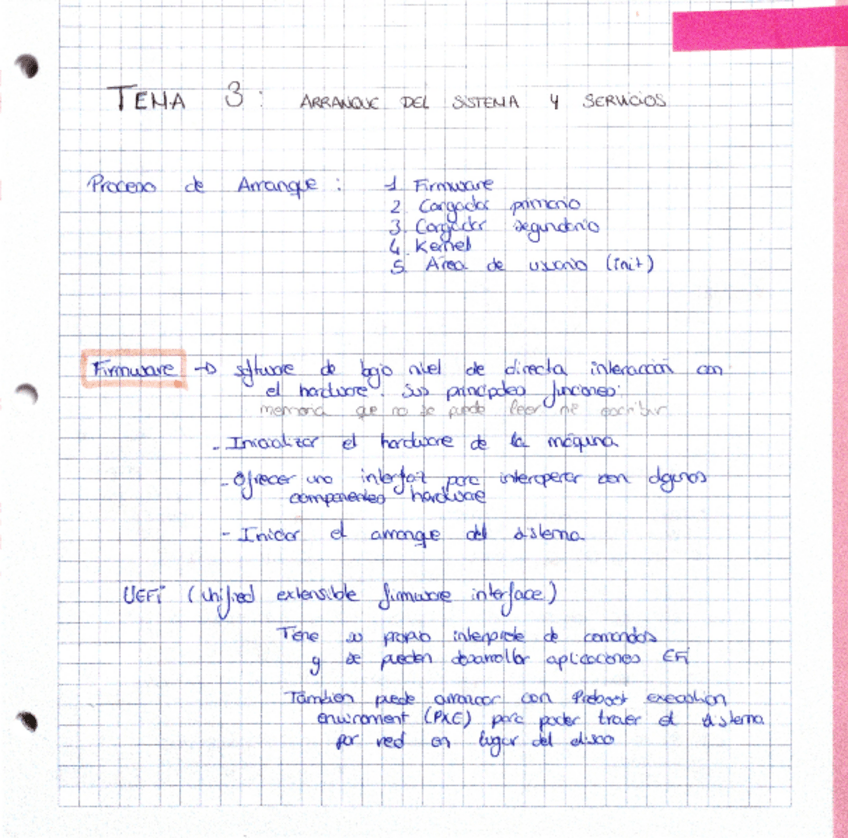 TEMA 3: ARRANQUE DEL SISTEMA Y SERVICIOS
Proceso de Arranque: 1. Firmware
2. Cargador primario
3. Cargador segundario
4. Kernel
5. Área de usuario (init)
Firmware → software de bajo nivel de directa interacción con
el hardware. Sus principales funciones:
memoria que no se puede leer ni escribir
- Inicializar el hardware de la máquina
- Ofrecer una interfaz para interoperar con algunos
componentes hardware
- Iniciar el arranque del sistema
UEFI (Unified extensible firmware interface)
Tiene su propio interprete de comandos
y se pueden desarrollar aplicaciones EFI
Tambien puede arrancar con Preboot execution
enviroment (PXE) para poder traer el sistema
por red en lugar del disco